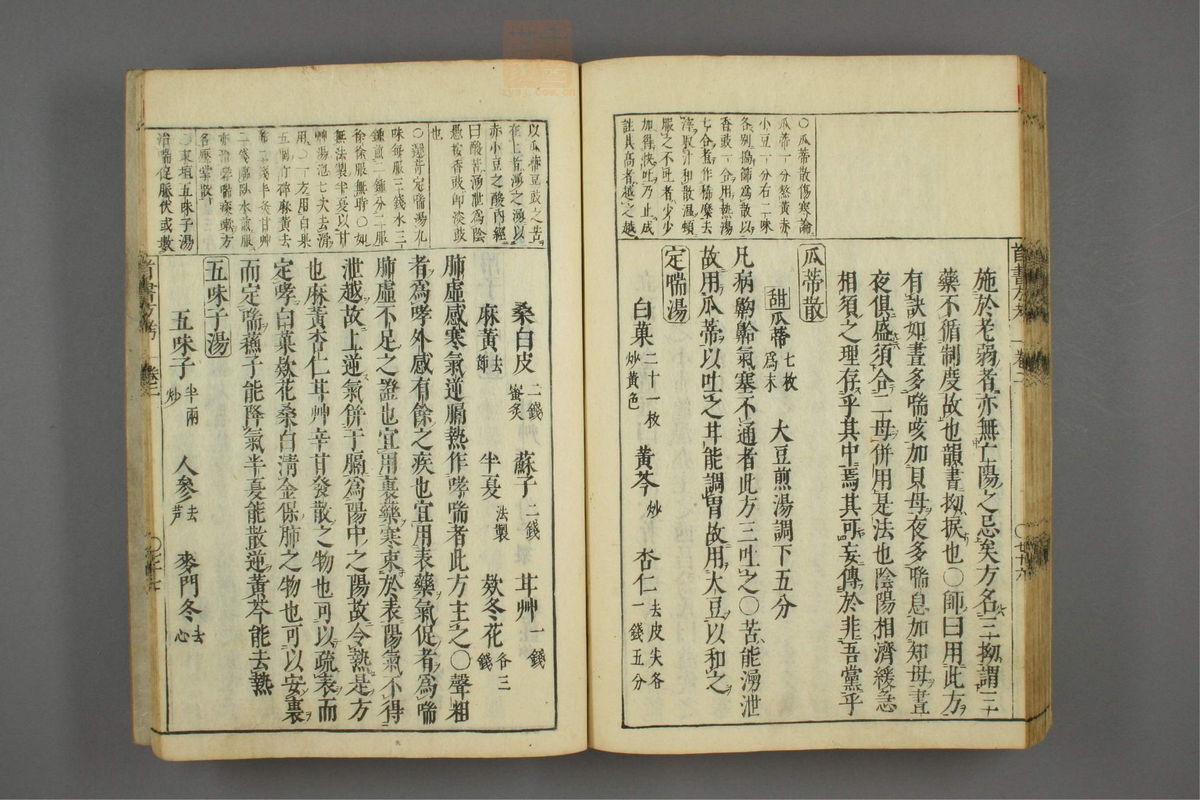 ○瓜蒂散傷寒論
瓜蒂一分熬黃赤
小豆一分右二味
各別搗篩為散以
香豉一合用熱湯
七合煮作稀糜去
滓取汁和散溫頓
服之不吐者少少
加得快吐乃止成
註其高者越之越
施於老弱者亦無亡陽之忌矣方名三拗謂三
藥不循制度故也韻書拗捩也○師曰用此方
有訣如晝多喘咳加貝母夜多喘息加知母晝
夜俱盛須合二母併用是法也陰陽相濟緩急
相須之理存乎其中焉其可妄傳於非吾黨乎
瓜蒂散
甜瓜蒂七枚為末 大豆煎湯調下五分
凡病齁䶎氣塞不通者此方三吐之○苦能湧泄
故用瓜蒂以吐之甘能調胃故用大豆以和之
定喘湯
白菓二十一枚炒黃色 黃芩炒 杏仁去皮尖各一錢五分
以瓜蒂豆豉之苦
在上者湧之湧以
赤小豆之酸內經
曰酸苦湧泄為陰
愚按香豉即淡豉
也
味每服三錢水三
鍾煎一鍾分二服
徐徐服無時○如
無法製半夏以甘
艸湯泡七次去滑
用○一方用白果
五個
名壓掌散
○東垣五味子湯
治喘促脈伏或數
桑白皮二錢蜜炙 蘇子二錢 甘艸一錢
麻黃去節 半夏法製 欵冬花各三錢
肺虛感寒氣逆膈熱作哮喘者此方主之○聲粗
者為哮外感有餘之疾也宜用表藥氣促者為喘
肺虛不足之證也宜用裏藥寒束於表陽氣不得
泄越故上逆氣併于膈為陽中之陽故令熱是方
也麻黃杏仁甘艸辛甘發散之物也可以疏表而
定哮白菓欵花桑白清金保肺之物也可以安裏
而定喘蘇子能降氣半夏能散逆黃芩能去熱
五味子湯
五味子半兩炒 人參去芦 麥門冬去心